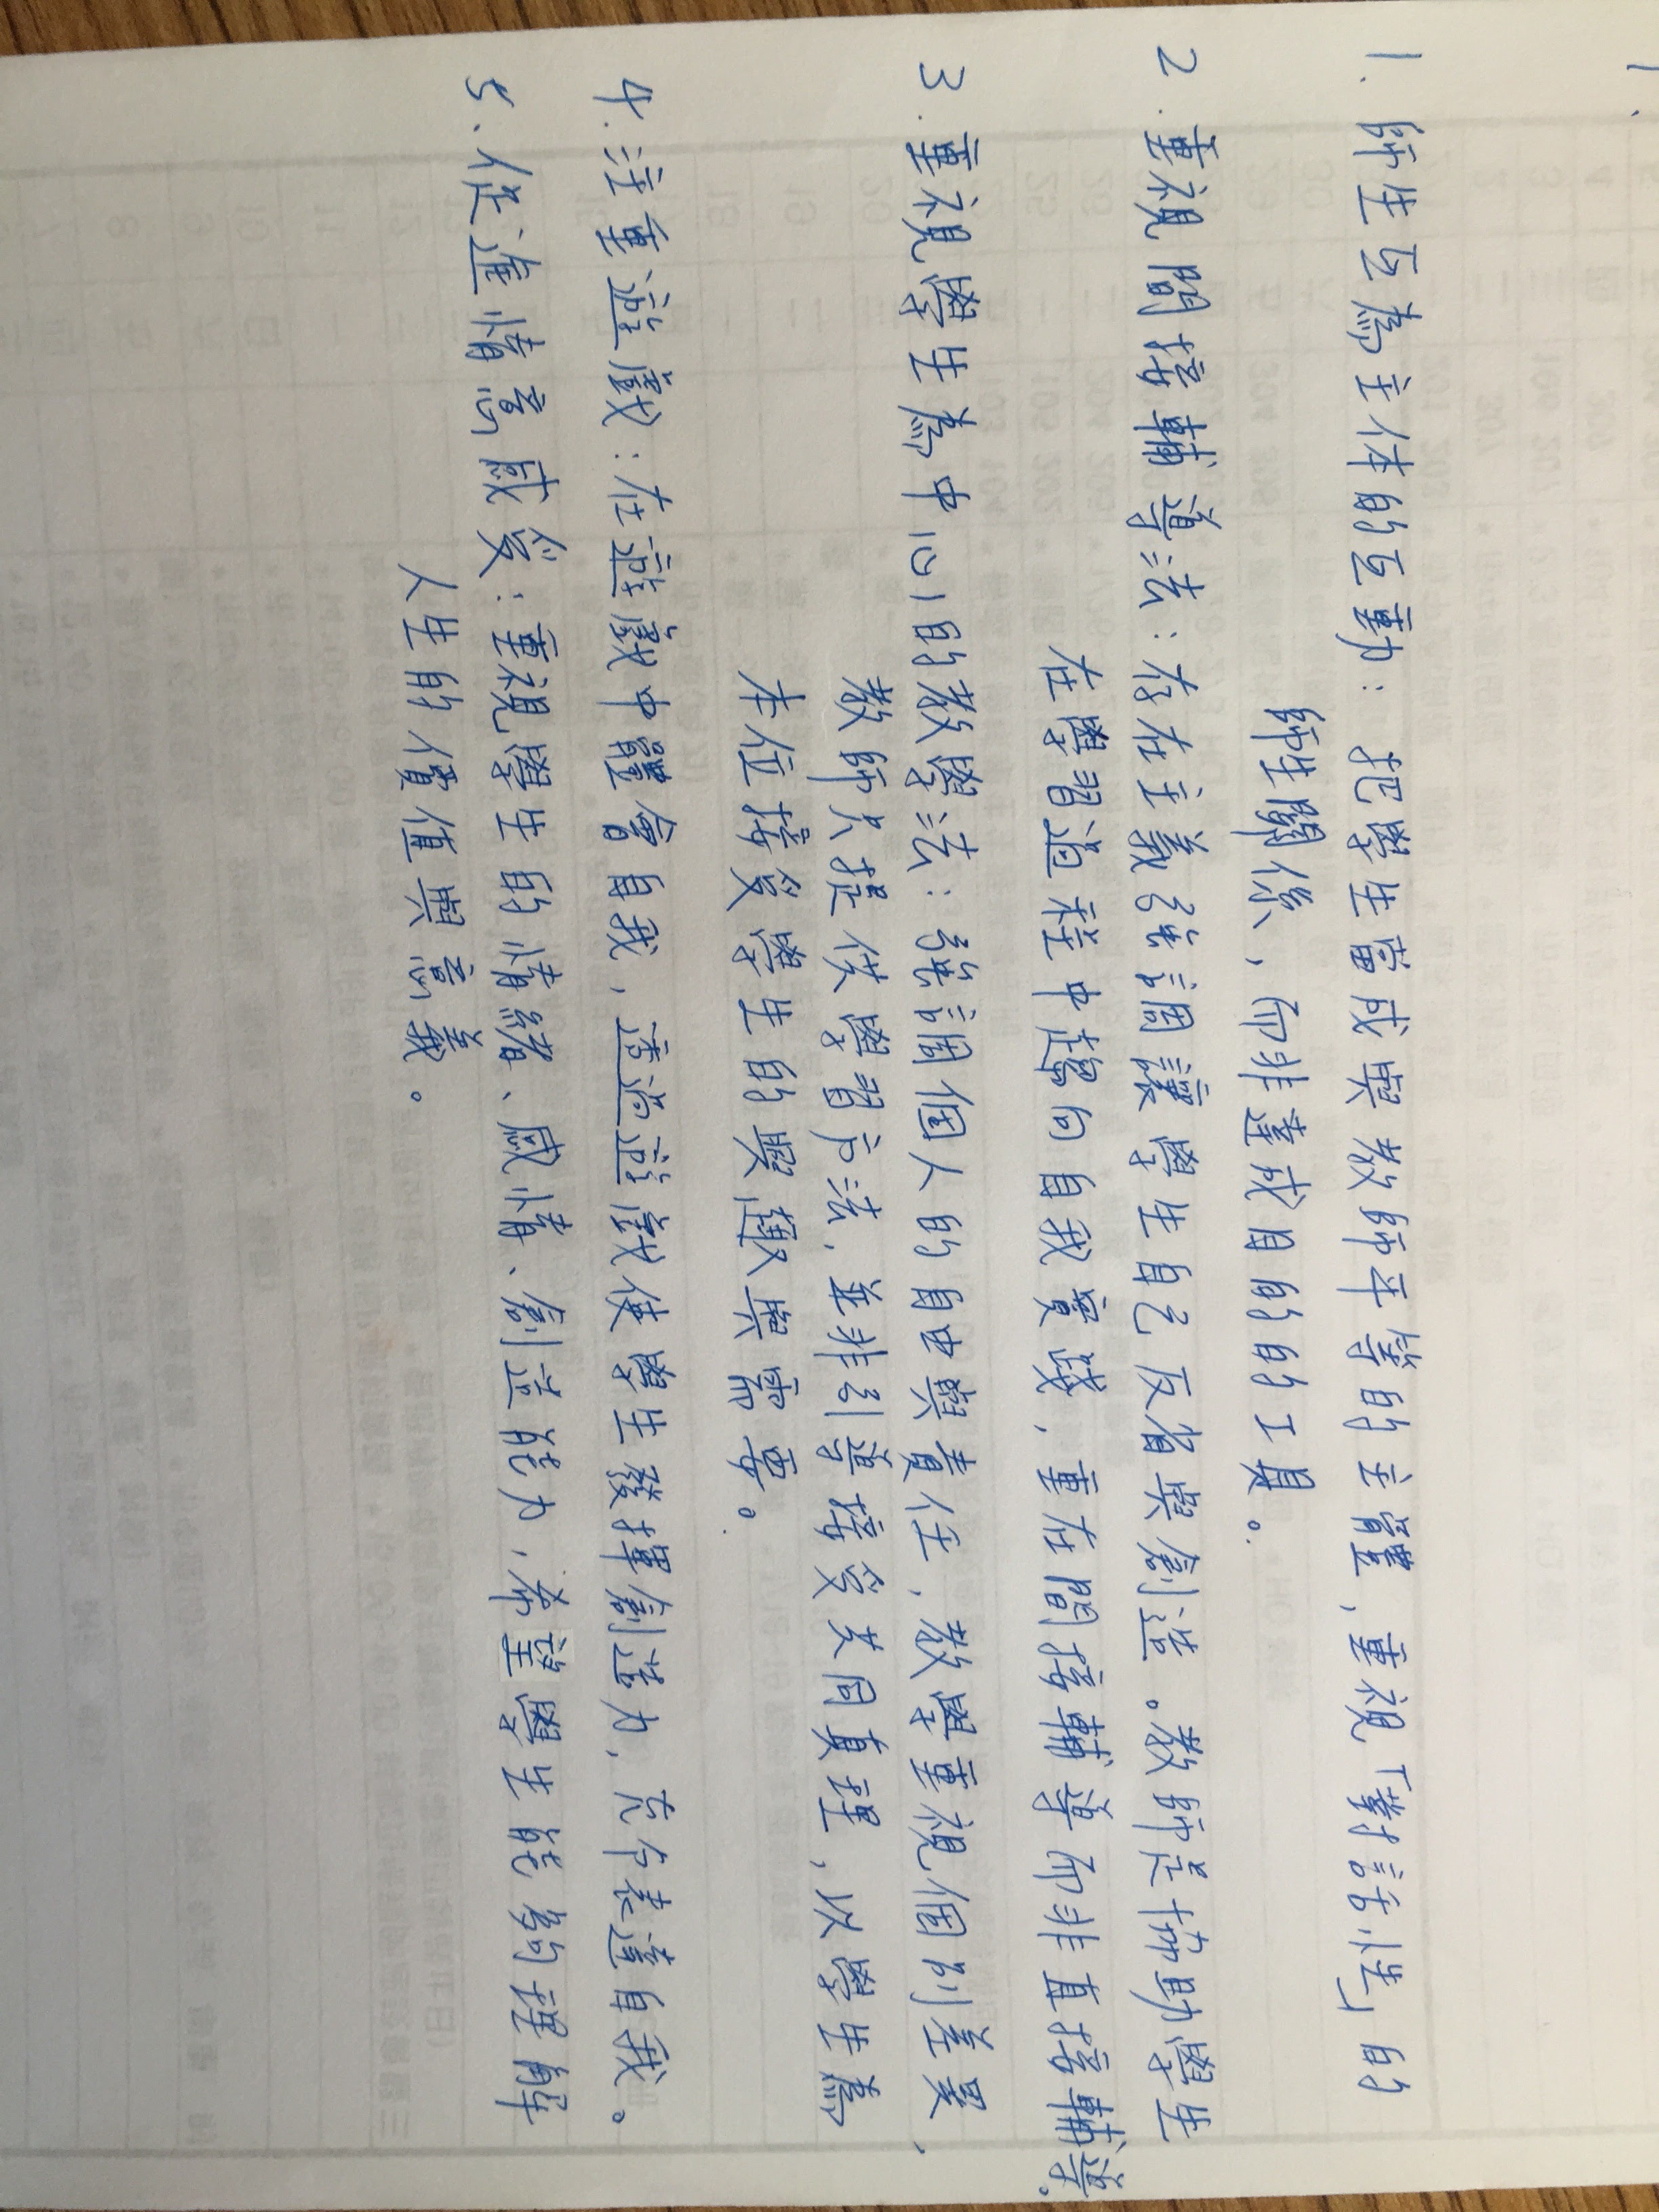 1. 師生互為主体的互動：把學生當成與教師平等的主體，重視「對話性」的
師生關係、而非達成目的的工具。
2. 重視間接輔導法：存在主義強調讓學生自己反省與創造。教師是協助學生
在學習過程中趨向自我實踐，重在間接輔導而非直接輔導。
3. 重視學生為中心的教學法：強調個人的自由與責任，教學重視個別差異，
教師只提供學習方法，並非引導接受共同真理，以學生為
本位接受學生的興趣與需要。
4. 注重遊戲：在遊戲中體會自我，透過遊戲使學生發揮創造力，充分表達自我。
5. 促進情意感受：重視學生的情緒、感情、創造能力，希望學生能夠理解
人生的價值與意義。